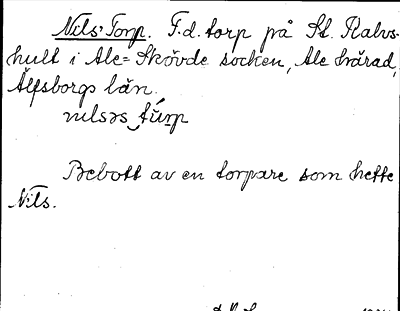 Nils' Torp. F.d. torp på St. Ralvs-
hult i Ale-Skövde socken, Ale härad,
Älfsborgs län.
nılsəs tu̇rp
Bebott av en torpare som hette
Nils.